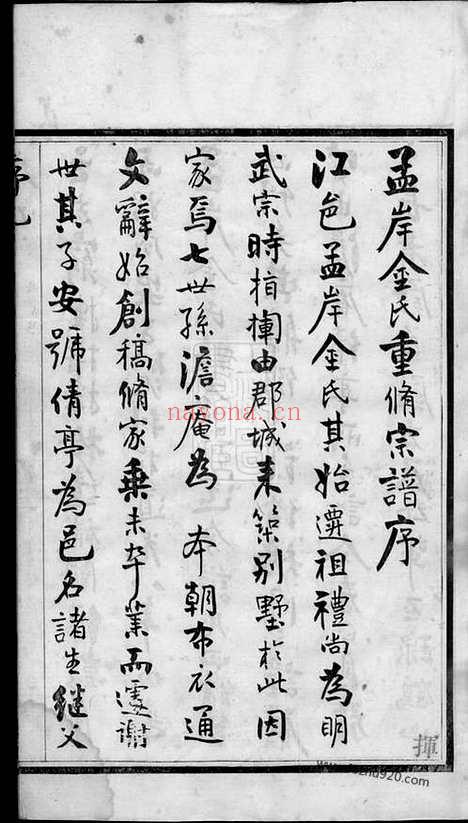 孟岸金氏重脩宗譜序
江邑孟岸金氏其始遷祖禮尚為明
武宗時指揮由郡城來築別墅於此因
家焉七世孫澹庵為 本朝布衣通
文辭始創稿脩家乘未卒業而遽謝
世其子安號倩亭為邑名諸生繼父
序
揮
nayona.cn